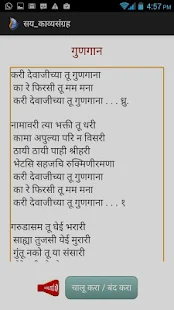 4:57 PM
सय_काव्यसंग्रह
गुणगान
करी देवाजीच्या तू गुणगाना
का रे फिरसी तू मम मना
करी देवाजीच्या तू गुणगाना . . . ध्रु.
नामावरी त्या भक्ती तू धरी
कामा अपुल्या परि न विसरी
ठायी ठायी पाही श्रीहरी
भेटसि सहजचि रुक्मिणीरमणा
करी देवाजीच्या तू गुणगाना
करी देवाजीच्या तू गुणगाना . . . १
गरुडासम तू घेई भरारी
साह्या तुजसी येई मुरारी
गुंतू नको तू या संसारी
चालू करा / बंद करा